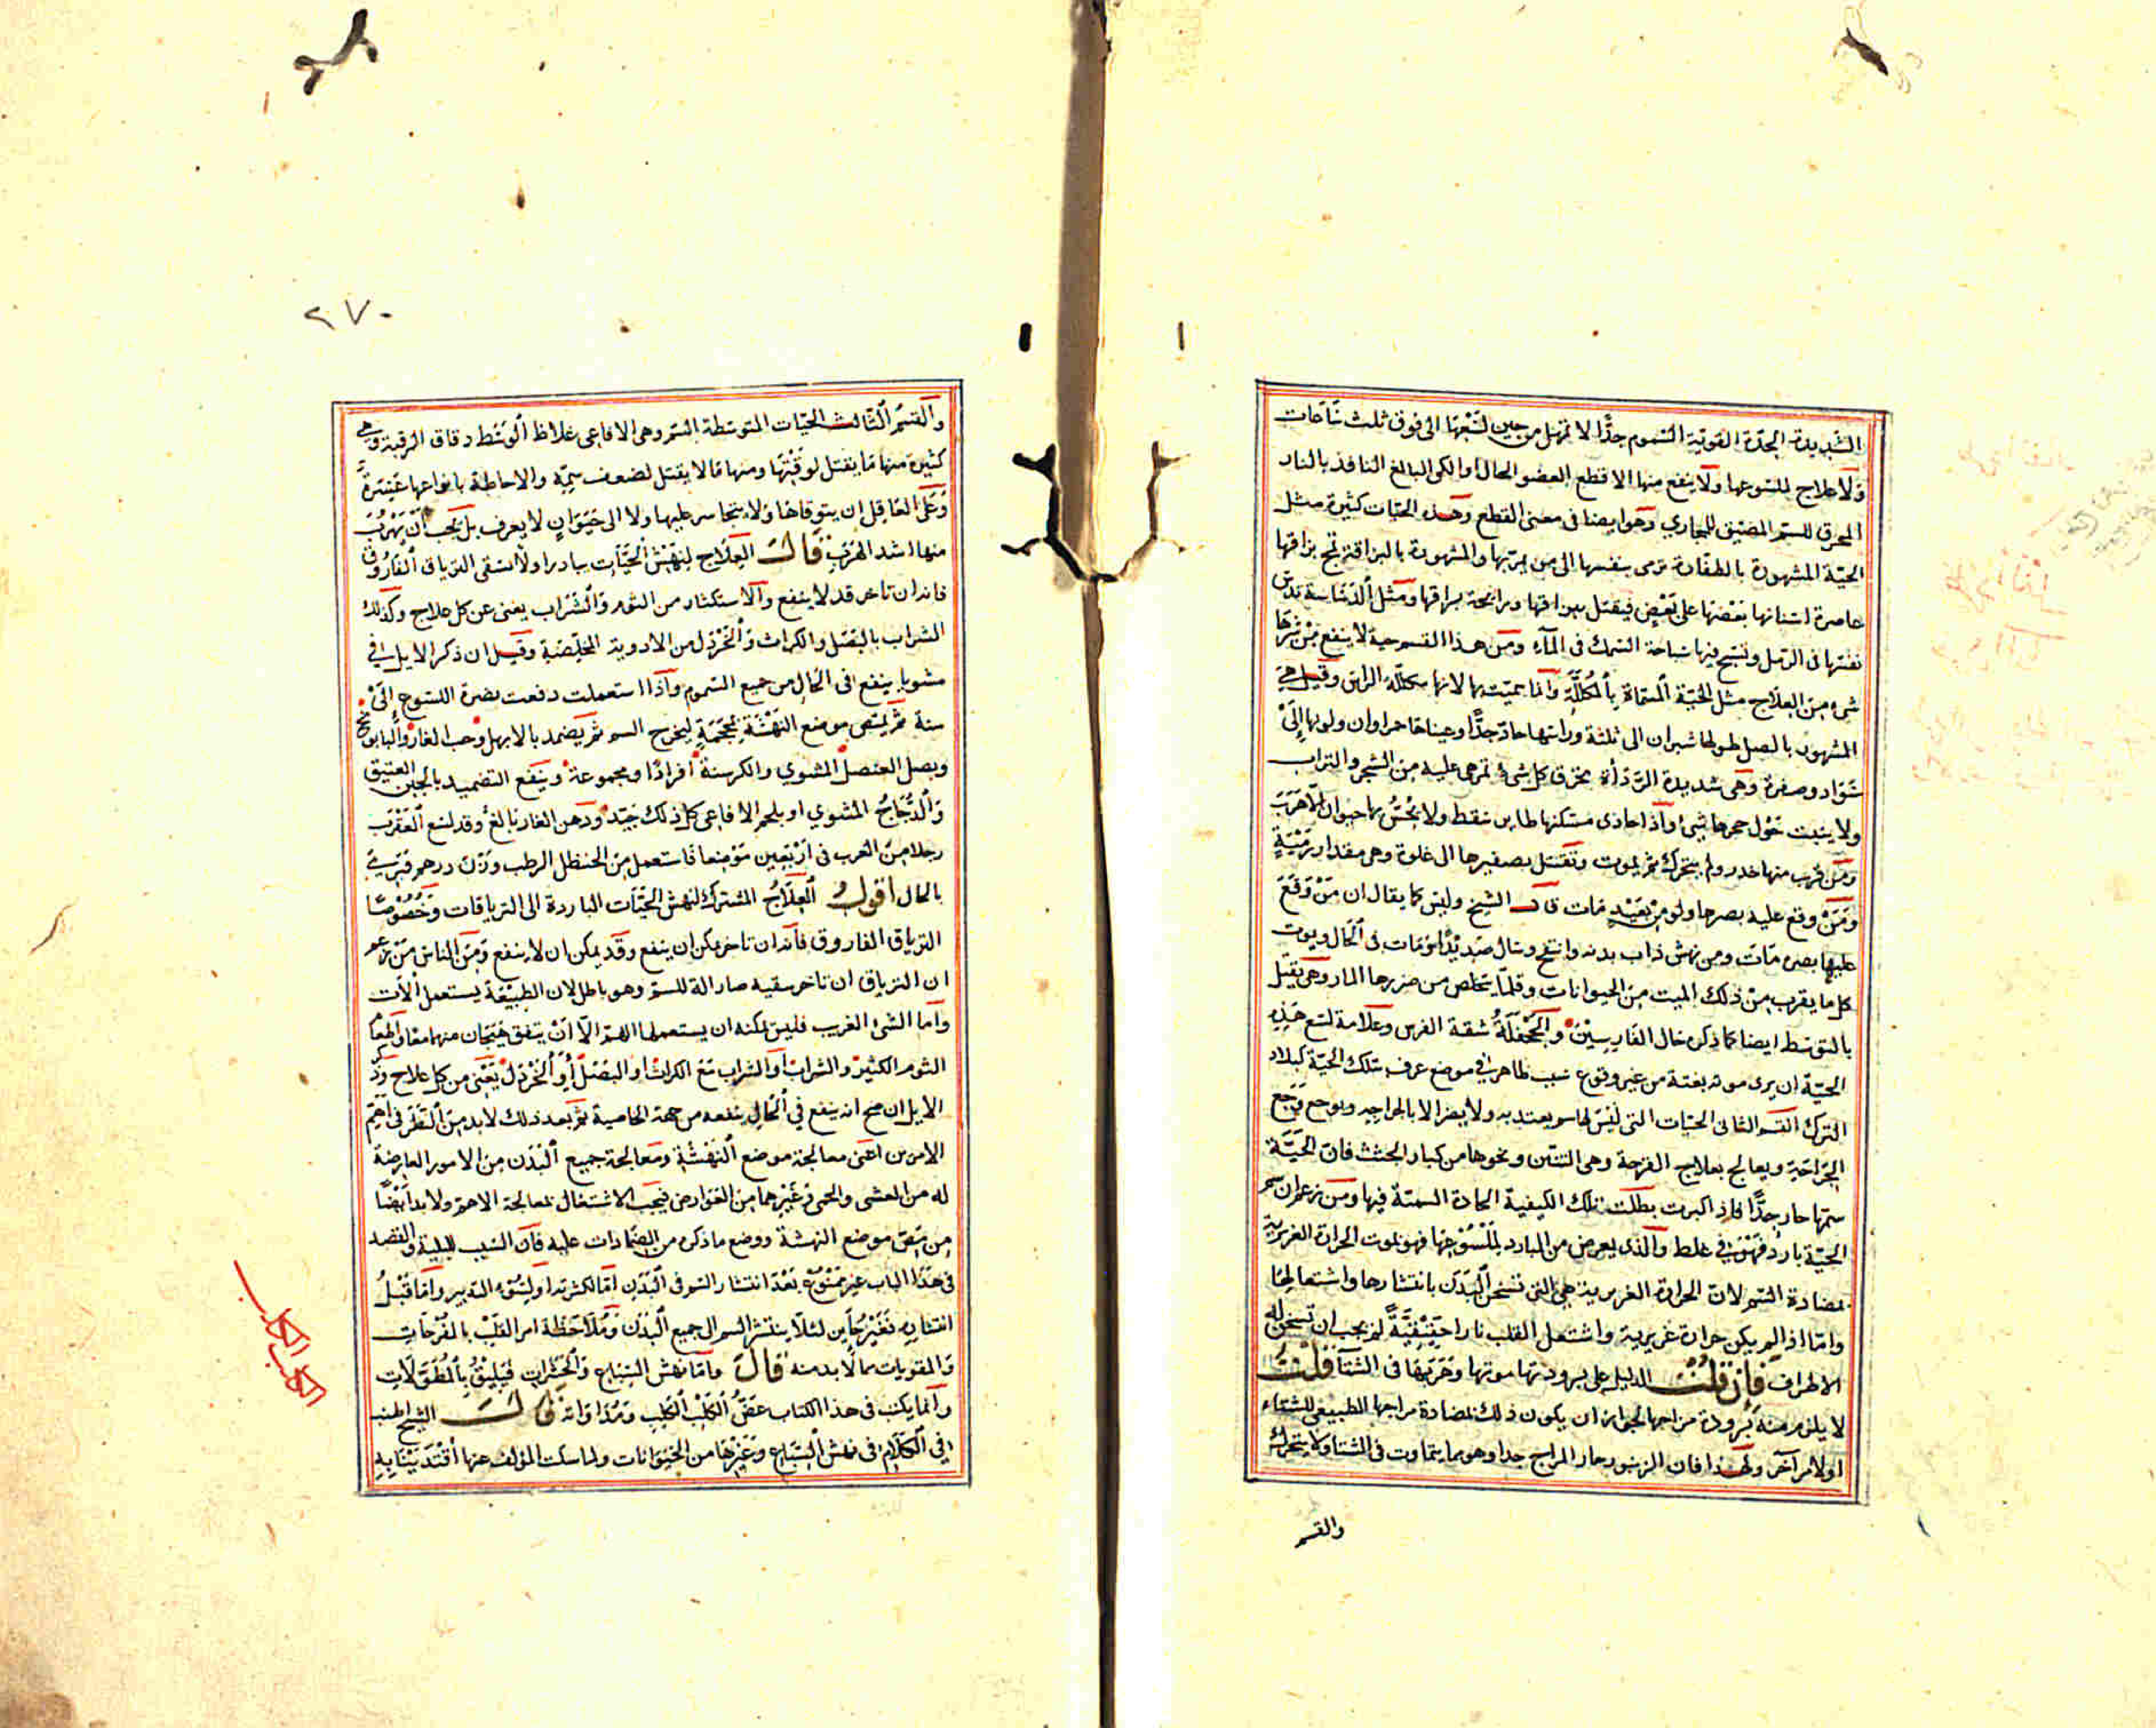 الشديدة الحدة القوية السموم جدًّا لا تمهل من حين لسعها الى فوق ثلث ساعات
ولا علاج للسوعها ولا ينفع منها الا قطع العضو الحال او الكى البالغ النافذ بالنار
المحرق للسم المضيق للمجاري وهو ايضا فى معنى القطع وهذه الحيات كثيرة مثل
الحية المشهورة بالطفارة ترمى بنفسها الى من يمر بها والمشهورة بالبزاقة تمج بزاقها
عاصرة اسنانها بعضها على بعض فيقتل ببزاقها ورائحة بزاقها ومثل الدساسة تدس
نفسها فى الرمل وتسبح فيها سباحة السمك فى المآء ومن هذا القسم حية لا ينفع من شرها
شئ من العلاج مثل الحية المسماة بالمكللة وانما سميت بها لانها مكللة الراس وقيل هى
المشهور بالصل طولها شبران الى ثلثة وراسها حاد جدًّا وعيناها حمراوان ولونها الى
سواد وصفرة وهى شديدة الرداءة تحرق كل شئ تمر هى عليه من الشجر والتراب
ولا ينبت حول جحرها شئ واذا حاذى مسكنها طاير سقط ولا يحس بها حيوان الا هرب
ومن قرب منها خدر ولم يتحرك ثم يموت وتقتل بصفيرها الى غلوة وهى مقدار رمية
ومن وقع عليه بصرها ولو من بعيد مات قال الشيخ وليس كما يقال ان من وقع
عليها بصره مات ومن نهش ذاب بدنه وانتفخ وسال صديدًا ومات فى الحال ويموت
كل ما يقرب من ذلك الميت من الحيوانات وقلما يتخلص من ضررها المار وهى تقتل
بالتوسط ايضا كما ذكر حال الفارسين والجحفلة شقة الفرس وعلامة لسع هذه
الحية ان يرى موته بغتة من غير وقوع سبب ظاهر فى موضع عرف بتلك الحية كبلاد
الترك القسم الثانى الحيات التى ليس لها سم يعتد به ولا يضر الا بالجراحة ويوجع وجع
الجراحة ويعالج بعلاج القرحة وهى التنين ونحوها من كبار الجثث فان الحية
سمها حار جدًّا فاذا كبرت بطلت تلك الكيفية الحادة السمية فيها ومن زعم ان سم
الحية بارد فهو فى غلط والذى يعرض من البارد لملسوعها فهو لموت الحرارة الغريزية
لمضادة السم لان الحرارة الغريزية هى التى تسخن البدن بانتشارها واشتعالها
واما اذا لم يكن حرارة غريزية واشتعل القلب نارا حقيقية لم يجب ان تسخن له
الاطراف فان قلت الدليل على برودتها موتها وهربها فى الشتآ قلت
لا يلزم منه برودة مزاجها لجواز ان يكون ذلك لمضادة مزاجها الطبيعى للشتاء
او لامر آخر ولهذا فان الزنبور حار المزاج جدا وهو مما يتماوت فى الشتا ولا يتحرك
والقسم
٢٧٠
والقسم الثالث الحيات المتوسطة السم وهى الافاعى غلاظ الوسط دقاق الرقبة وهى
كثيرة منها ما يقتل لوقتها ومنها ما لا يقتل لضعف سمه والاحاطة بانواعها عسرة
وعلى العاقل ان يتوقاها ولا يتجاسر عليها ولا الى حيوان لا يعرف بل يجب ان يهرب
منها اشد الهرب قال العلاج لنهش الحيات يبادر اولا لسقى الترياق الفاروق
فانه ان تاخر قد لا ينفع والاستكثار من الثوم والشراب يغنى عن كل علاج وكذلك
الشراب بالبصل والكراث والخردل من الادوية المخلصة وقيل ان ذكر الايل فى
مشويا ينفع فى الحال من جميع السموم واذا استعملت دفعت مضرة اللسوع الى
سنة ثم يمص موضع النهشة بمحجمة ليخرج السم ثم يضمد بالابهل وحب الغار والبابونج
وبصل العنصل المشوي والكرسنة افرادًا ومجموعة وينفع التضميد بالجبن العتيق
والدجاج المشوي او بلحم الافاعى كل ذلك جيد ودهن الغار نافع وقد لسع العقرب
رجلا من العرب فى اربعين موضعا فاستعمل من الحنظل الرطب وزن درهم فبرئ
بالحال اقول العلاج المشترك لنهش الحيات المبادرة الى الترياقات وخصوصا
الترياق الفاروق فانه ان تاخر يمكن ان ينفع وقد يمكن ان لا ينفع ومن الناس من زعم
ان الترياق ان تاخر سقيه صار الة للسم وهو باطل لان الطبيعة يستعمل الآلات
واما الشئ الغريب فليس يمكنه ان يستعملها اللهم الا ان يتفق هيجان منهما معا واطعام
الثوم الكثير والشراب او الشراب مع الكراث او البصل او الخردل يغنى من كل علاج وذكر
الايل ان صح انه ينفع فى الحال ينفعه من جهة الخاصية ثم بعد ذلك لا بد من النظر فى اهم
الامرين اعنى معالجة موضع النهشة ومعالجة جميع البدن من الامور العارضة
له من الغشى والحمى وغيرهما من العوارض فيجب الاشتغال لمعالجة الاهم ولا بد ايضا
من مص موضع النهشة ووضع ما ذكره من الضمادات عليه فان السبب للبلية والفصد
فى هذا الباب غير ممنوع بعد انتشار السم فى البدن اما لكثرته او لسوء التدبير واما قبل
انتشاره فغير جاين لئلا ينتشر السم الى جميع البدن وملاحظة امر القلب بالمفرحات
والمقويات مما لا بد منه قال واما نهش السباع والحشرات فيليق بالمطولات
وانما يكتب فى هذا الكتاب عض الكلب الكلب ومداواته قال الشيخ اطنب
فى الكلام فى نهش السباع وغيرها من الحيوانات ولما سكت المؤلف عنها اقتدينا به
الكلب الكلب